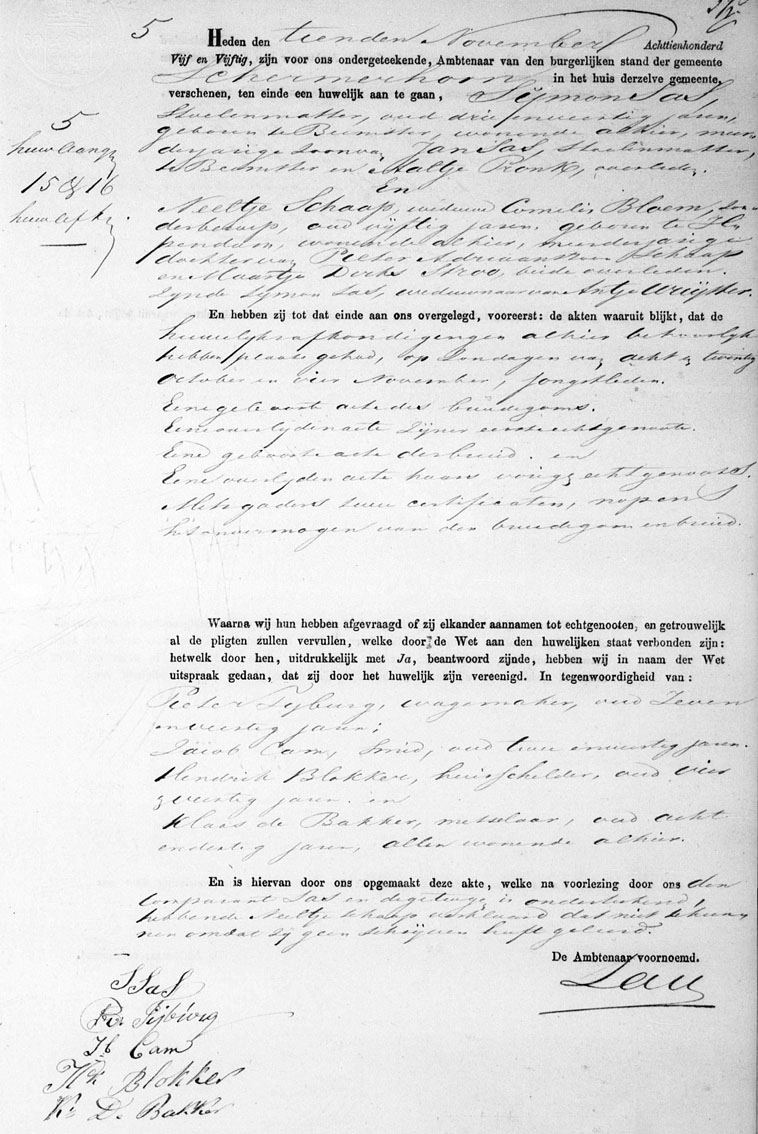 5
Heden den tienden November Achttienhonderd
Vijf en Vijftig, zijn voor ons ondergeteekende, Ambtenaar van den burgerlijken stand der gemeente
Schermerhorn in het huis derzelve gemeente,
verschenen, ten einde een huwelijk aan te gaan, Sijmon Sas,
Stoelenmatter, oud drie en veertig jaren,
geboren te Beemster, wonende alhier, meer-
derjarige zoon van Jan Sas, Stoelenmatter,
te Beemster en Maltje Pronk, overleden.
En
Neeltje Schaap, weduwe Cornelis Bloem, zon-
derberoep, oud vijftig jaren, geboren te Ilp
pendam, wonende alhier, meerderjarige
dochter van Pieter Adriaanszoon Schaap
en Maartje Dirks Stroo, beide overleden.
Zijnde Sijmon Sas, weduwnaar van Antje Wuijster.
5
huw. aang
15 & 16
huw. afk
En hebben zij tot dat einde aan ons overgelegd, vooreerst: de akten waaruit blijkt, dat de
huwelijksafkondigingen alhier behoorlijk
hebben plaats gehad, op Zondagen van acht en twintig
October en vier November, jongstleden.
Eene geboorte acte des bruidegoms.
Eene overlijden acte zijner eerste echtgenoote.
Eene geboorte acte der bruid. en
Eene overlijden acte haars vorige echtgenoots.
Mitsgaders twee certificaten, nopens
het onvermogen van den bruidegom en bruid.
Waarna wij hun hebben afgevraagd of zij elkander aannamen tot echtgenooten, en getrouwelijk
al de pligten zullen vervullen, welke door de Wet aan den huwelijken staat verbonden zijn:
hetwelk door hen, uitdrukkelijk met Ja, beantwoord zijnde, hebben wij in naam der Wet
uitspraak gedaan, dat zij door het huwelijk zijn vereenigd. In tegenwoordigheid van:
Pieter Tijburg, wagemaker, oud Zeven
en veertig jaren;
Jacob Cam, Smid, oud twee en veertig jaren.
Hendrik Blokker, huisschilder, oud vier
en veertig jaren. en
Klaas de Bakker, metselaar, oud acht
en dertig jaren, allen wonende alhier.
En is hiervan door ons opgemaakt deze akte, welke na voorlezing door ons den
Comparant Sas en de getuigen is onderteekend,
hebbende Neeltje Schaap verklaard dat niet te kun-
nen omdat zij geen schrijven heeft geleerd.
De Ambtenaar voornoemd.
Lau
S Sas
Pr. Tijburg
Jb Cam
Hk Blokker
Ks De Bakker